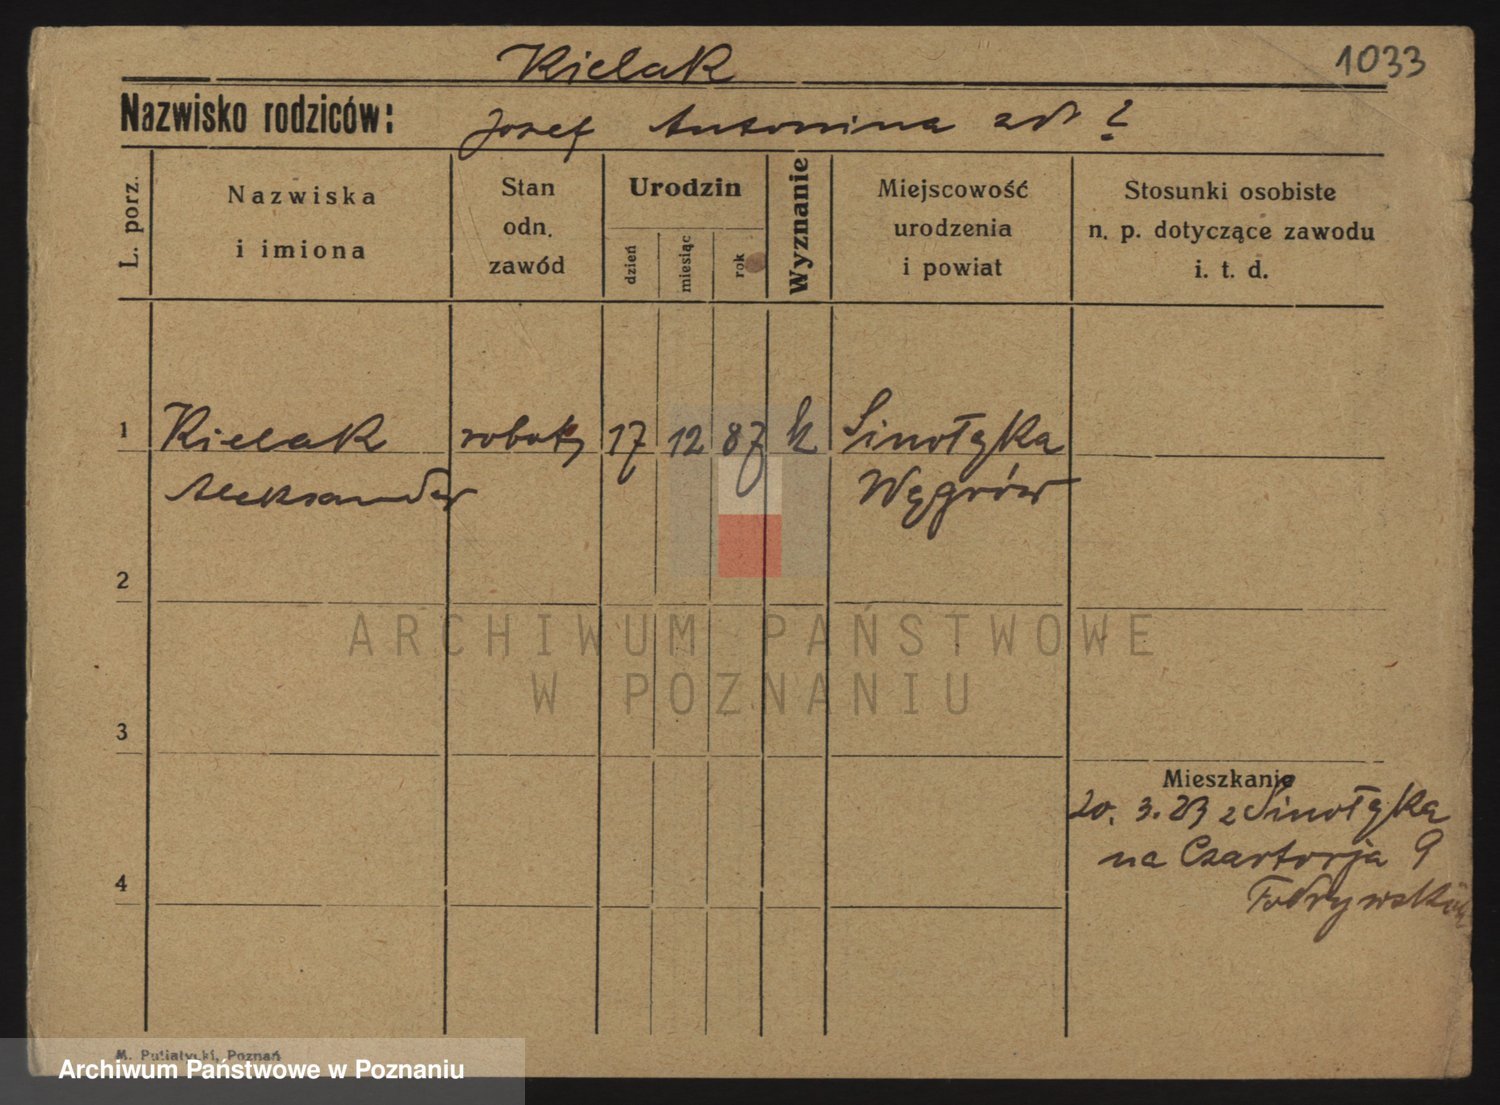 1033
Kielak
Nazwisko rodziców: Josef Antonina zd ?
L. porz.
Nazwiska
i imiona
Stan
odn.
zawód
Urodzin
dzień
miesiąc
rok
Wyznanie
Miejscowość
urodzenia
i powiat
Stosunki osobiste
n. p. dotyczące zawodu
i. t. d.
1 Kielak robot 17 12 87 k Sinołęka
Aleksander Węgrów
2
ARCHIWUM PAŃSTWOWE
W POZNANIU
3
Mieszkanie
20. 3. 23 z Sinołęka
na Czartorja 9
4
M. Putiatycki, Poznań
Archiwum Państwowe w Poznaniu